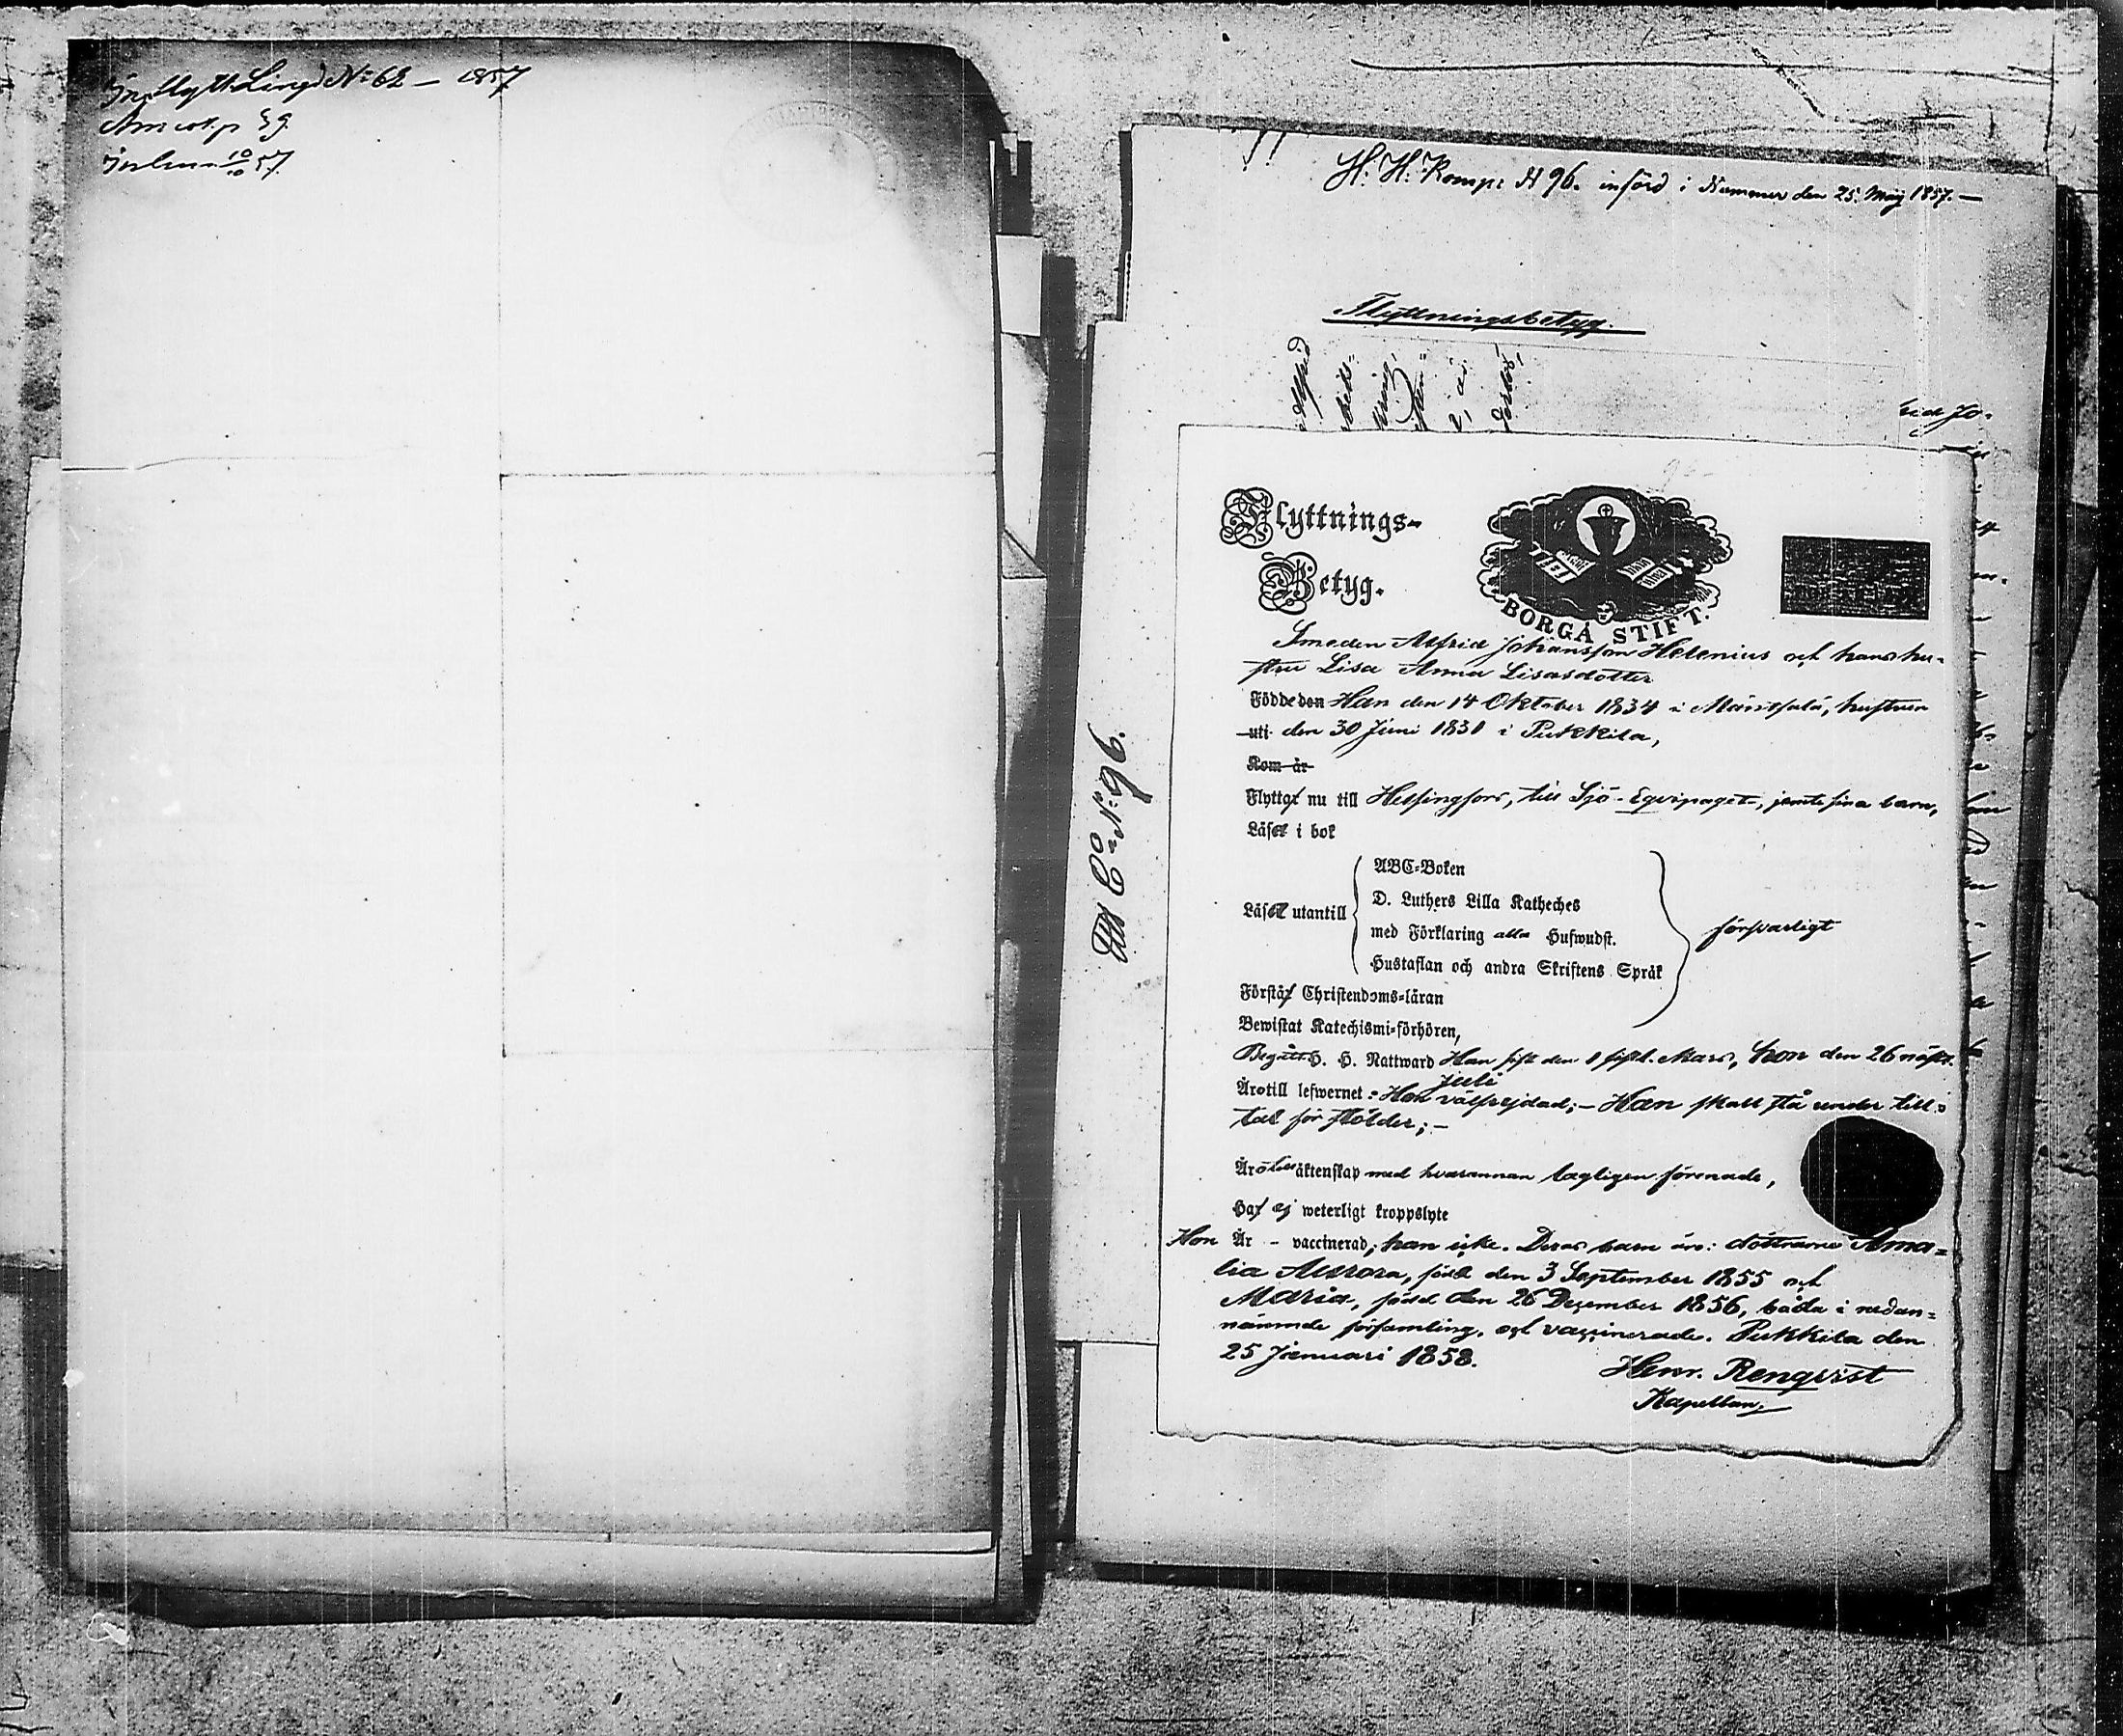 Inflytt. Längd № 62 – 1857
H: H: Komp: N 96. införd i Nummer den 25. Maij 1857. –
Flyttningsbetyg.
Alfrid
C° №: 96.
Flyttnings-
Betyg.
BORGÅ STIFT.
Smeden Alfrid Johansson Helenius och hans hu-
stru Lisa Anna Lisasdotter
Födde den Han den 14 Oktober 1834 i Mäntsälä, hustrun
uti den 30 Juni 1831 i Pukkila,
Kom år
Flytta nu till Helsingfors, till Sjö-Eqvipaget, jemte sina barn,
Läsa i bok
ABC-Boken
Läsa utantill
D. Luthers Lilla Katheches
med Förklaring alla Hufwudst.
försvarligt
Hustaflan och andra Skriftens Språk
Förstå Christendoms-läran
Bewistat Katechismi-förhören,
Begått H. H. Nattward Han sist den 1 sistl. Mars, hon den 26 näst.
Juli
Äro till lefwernet: Hon välfrejdad; – Han skall stå under till-
tal för stölder; –
Äro äktenskap med hvarannan lagligen förenade,
Ha ej weterligt kroppslyte
Hon Är – vaccinerad; han icke. Deras barn äro: döttrarne Ama-
lia Aurora, född den 3 September 1855 och
Maria, född den 26 December 1856, båda i nedan-
nämnde församling, och vaccinerade. Pukkila den
25 Januari 1858.
Henr. Renqvist
Kapellan,